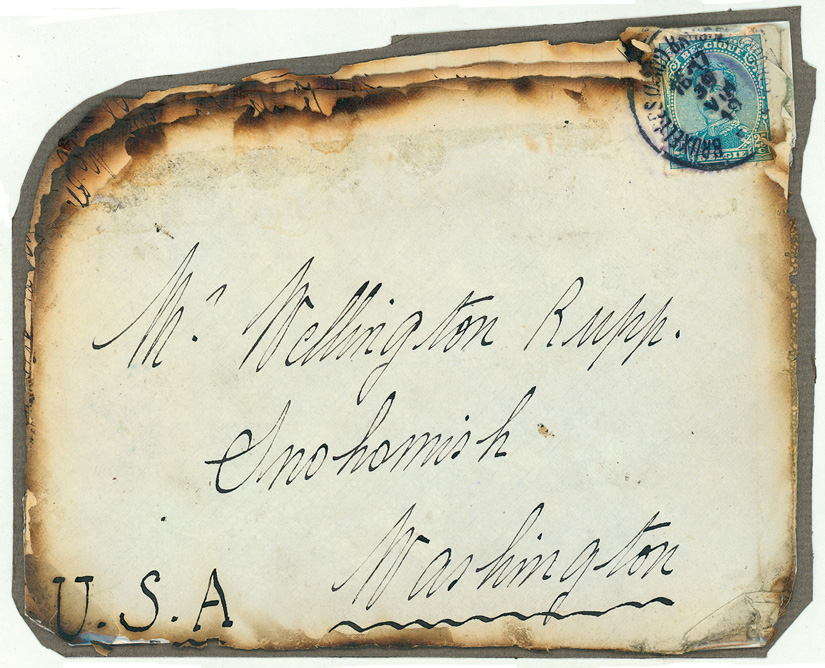 BELGIQUE
BRUXELLES
Mr Wellington Rupp.
Snohomish
Washington
U.S.A